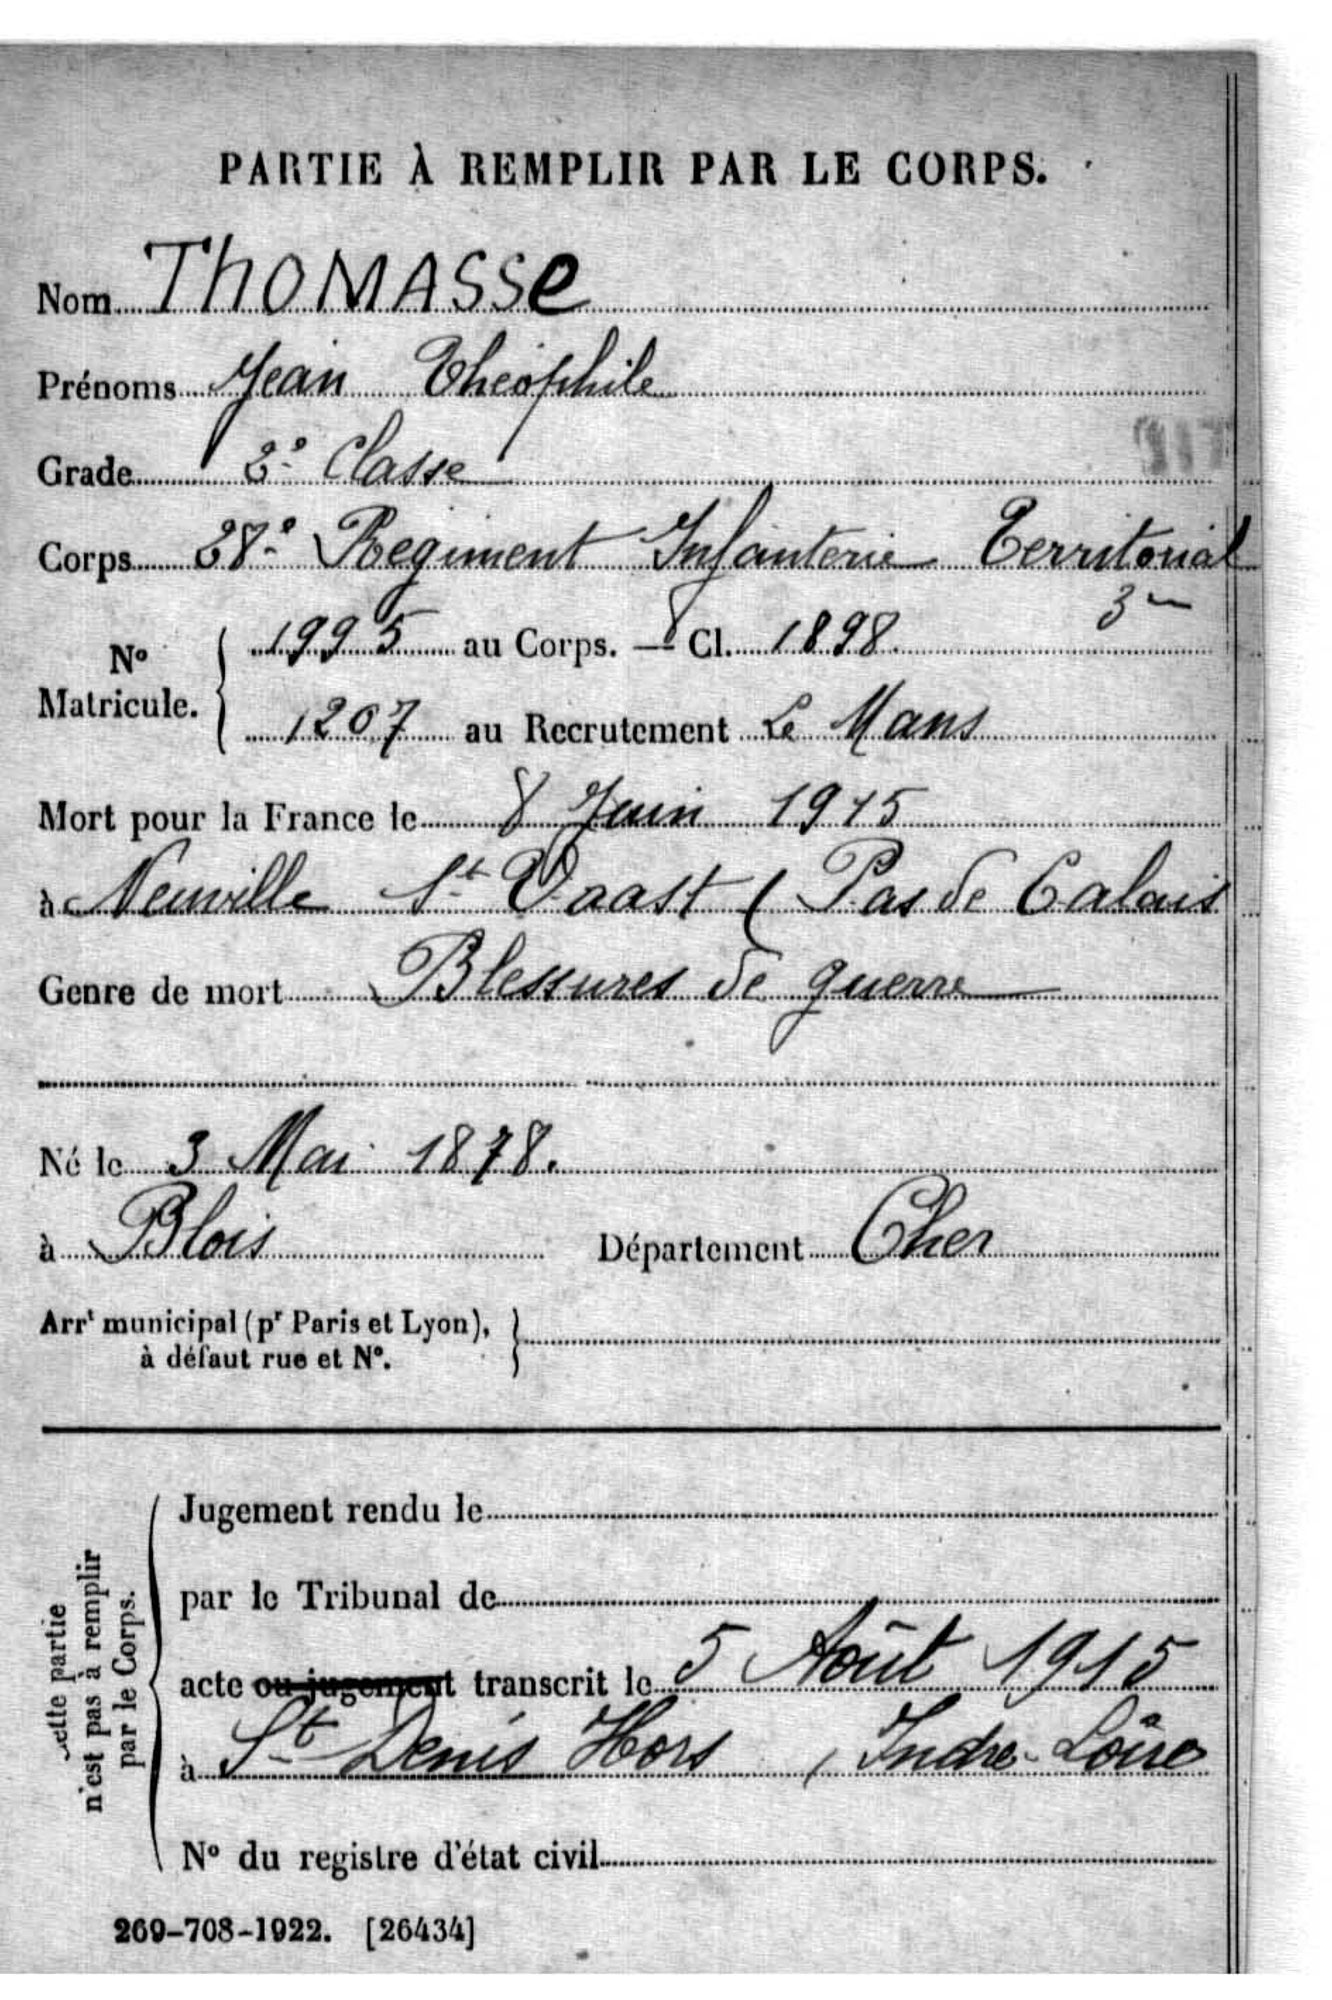 PARTIE À REMPLIR PAR LE CORPS.
Nom THOMASSe
Prénoms Jean Théophile
Grade 2e Classe
Corps 28e Regiment Infanterie Territorial
3
No Matricule. 1995 au Corps. — Cl. 1898.
1207 au Recrutement Le Mans
Mort pour la France le 8 Juin 1915
à Neuville St Vaast ( Pas de Calais
Genre de mort Blessures de guerre
Né le 3 Mai 1878.
à Blois Département Cher
Arrt municipal (pr Paris et Lyon),
à défaut rue et No.
Jugement rendu le
par le Tribunal de
acte ou jugement transcrit le 5 Août 1915
à St Denis Hors , Indre-Loire
No du registre d'état civil
Cette partie
n'est pas à remplir
par le Corps.
269-708-1922. [26434]